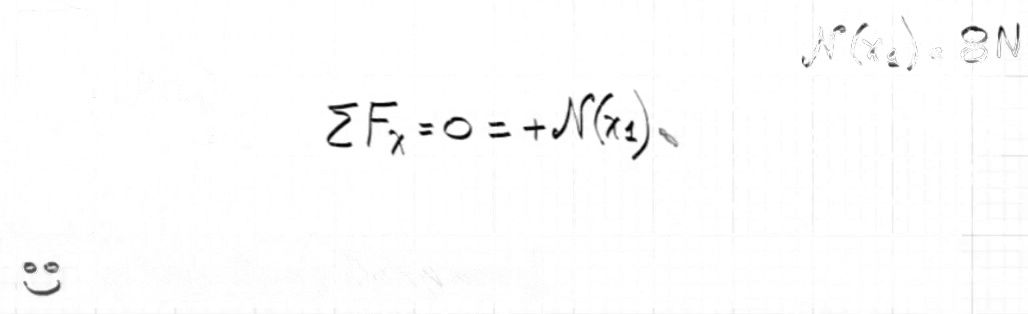 N(x₁) = 8N
ΣFₓ = 0 = +N(x₁)